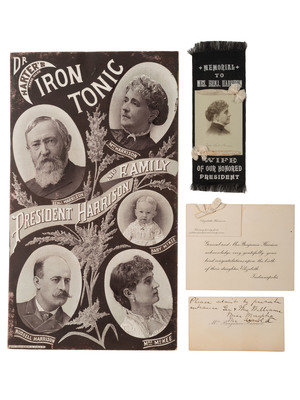 DR
HARTER'S
IRON
TONIC
MRS HARRISON
BENJ. HARRISON
PRESIDENT HARRISON
AND FAMILY
BABY McKEE
RUSSELL HARRISON
MRS McKEE
MEMORIAL
TO
MRS. BENJ. HARRISON
WIFE
OF OUR HONORED
PRESIDENT
Elizabeth Harrison
General and Mrs Benjamin Harrison
acknowledge very gratefully your
kind congratulations upon the birth
of their daughter Elizabeth
Indianapolis
Please admit by private
entrance Dr & Mrs Williams
Miss Murphy